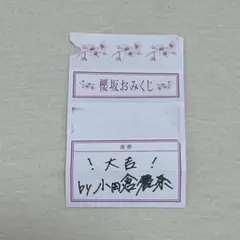 櫻坂おみくじ
運勢
！大吉！
by 小田倉麗奈